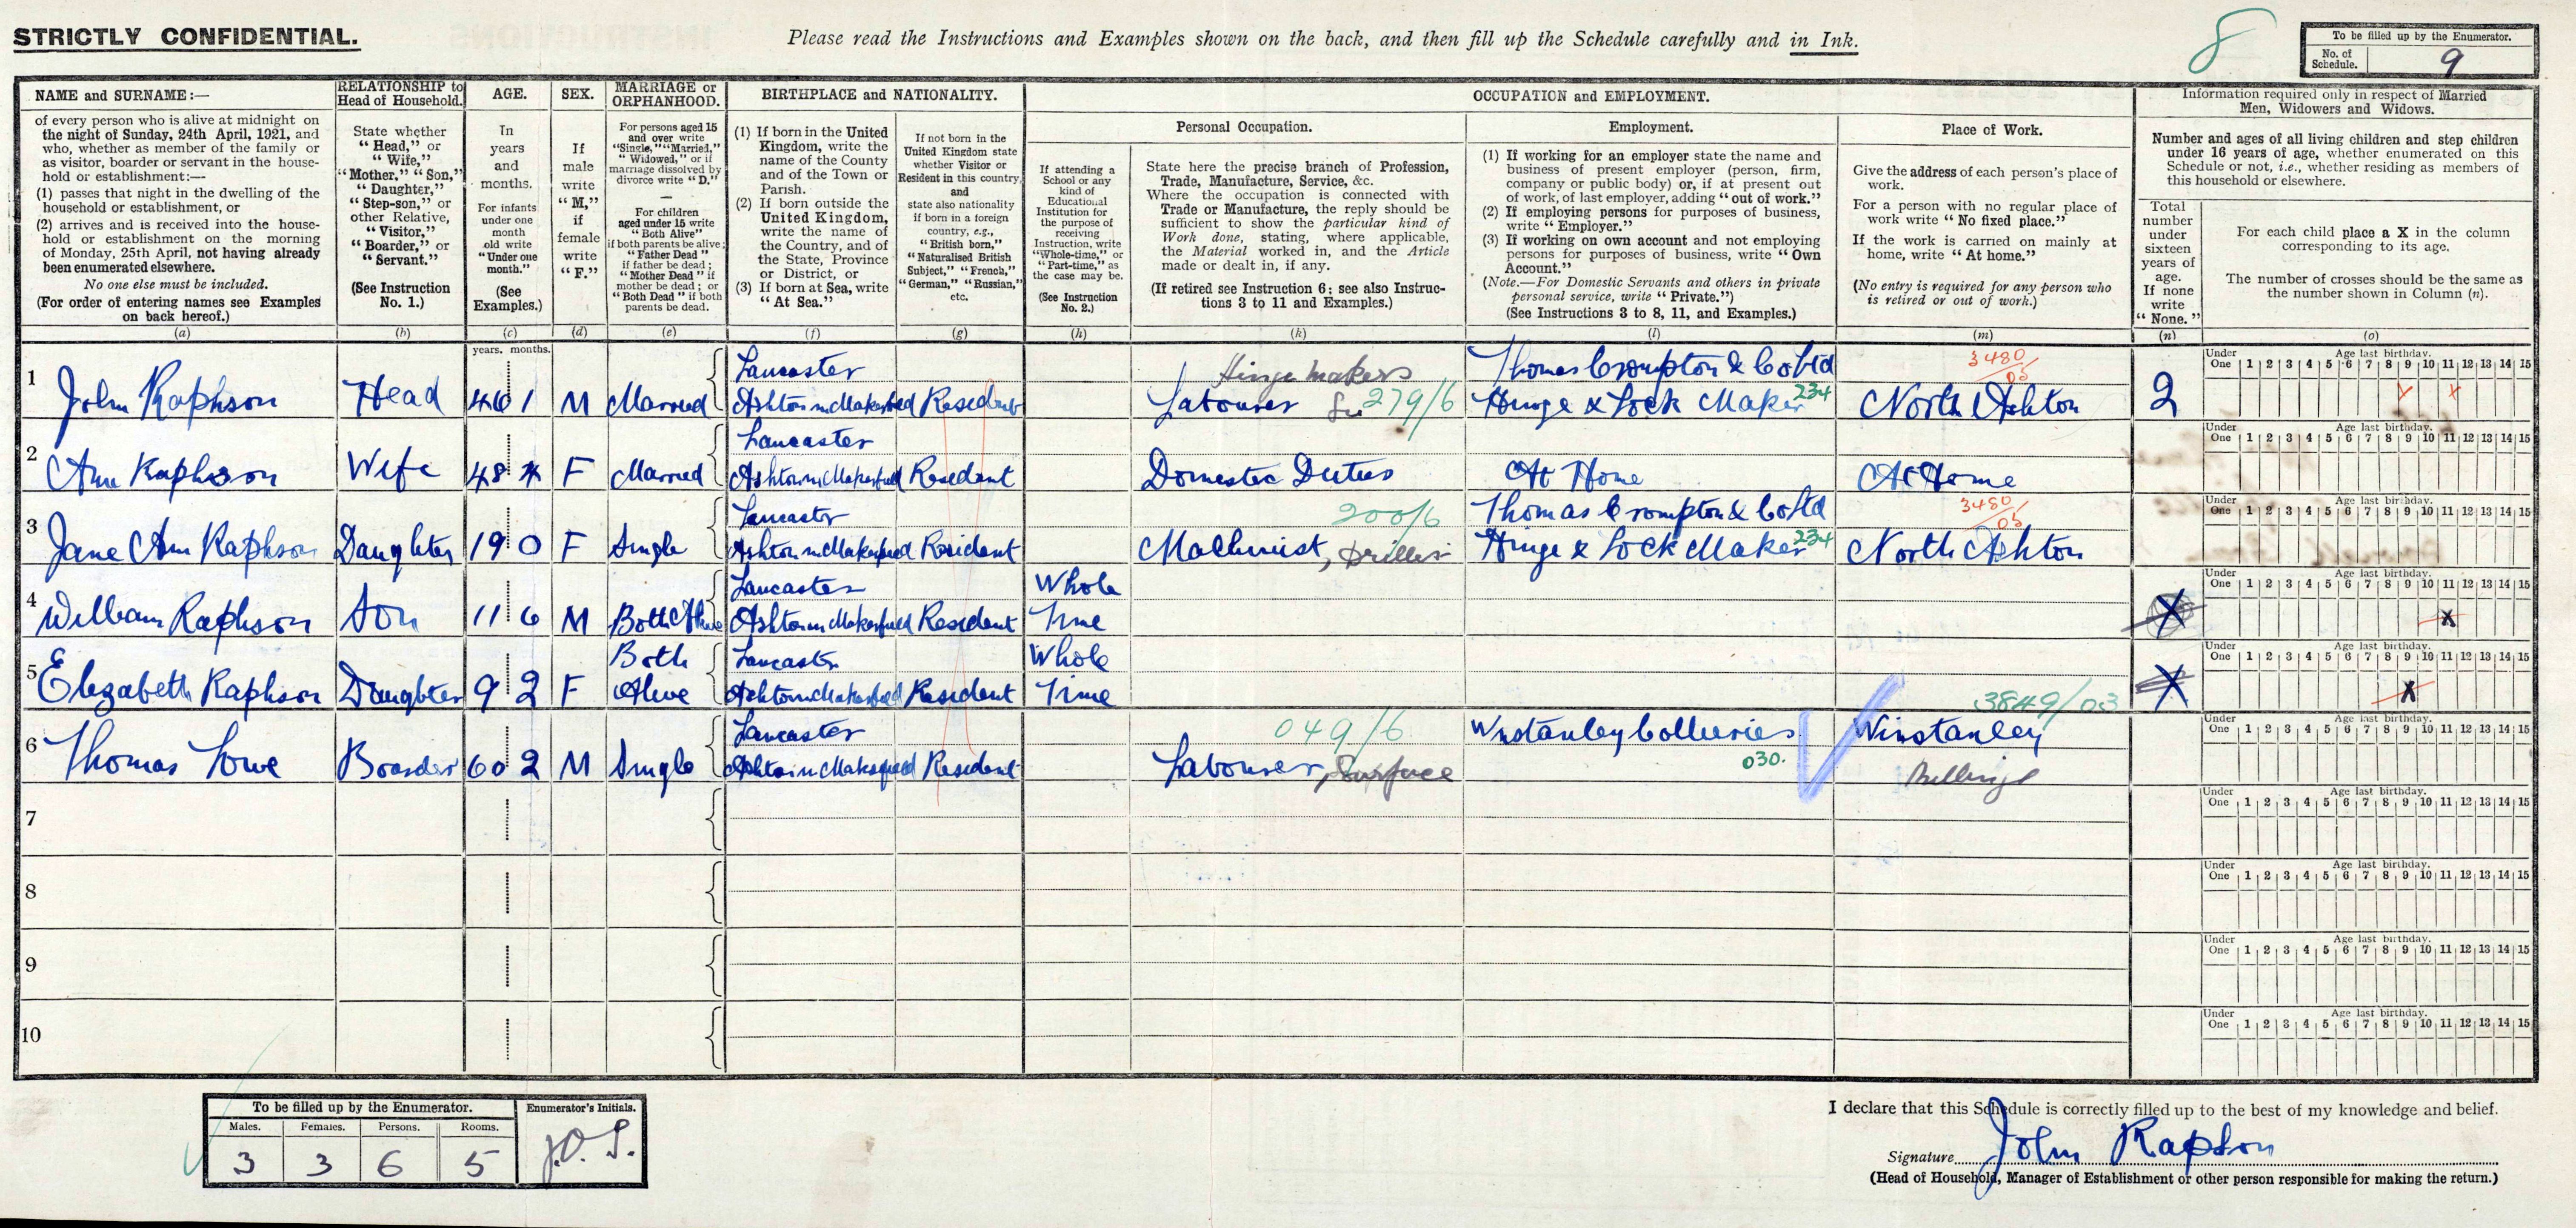 STRICTLY CONFIDENTIAL.
Please read the Instructions and Examples shown on the back, and then fill up the Schedule carefully and in Ink.
8
To be filled up by the Enumerator.
No. of Schedule. 9
NAME and SURNAME:—
of every person who is alive at midnight on
the night of Sunday, 24th April, 1921, and
who, whether as member of the family or
as visitor, boarder or servant in the house-
hold or establishment:—
(1) passes that night in the dwelling of the
household or establishment, or
(2) arrives and is received into the house-
hold or establishment on the morning
of Monday, 25th April, not having already
been enumerated elsewhere.
No one else must be included.
(For order of entering names see Examples
on back hereof.)
(a)
RELATIONSHIP to
Head of Household.
State whether
"Head," or
"Wife,"
"Mother," "Son,"
"Daughter,"
"Step-son," or
other Relative,
"Visitor,"
"Boarder," or
"Servant."
(See Instruction
No. 1.)
(b)
AGE.
In
years
and
months.
For infants
under one
month
old write
"Under one
month."
(See
Examples.)
(c)
SEX.
If
male
write
"M,"
if
female
write
"F."
(d)
MARRIAGE or
ORPHANHOOD.
For persons aged 15
and over write
"Single," "Married,"
"Widowed," or if
marriage dissolved by
divorce write "D."
For children
aged under 15 write
"Both Alive"
if both parents be alive;
"Father Dead"
if father be dead;
"Mother Dead" if
mother be dead; or
"Both Dead" if both
parents be dead.
(e)
BIRTHPLACE and NATIONALITY.
(1) If born in the United
Kingdom, write the
name of the County
and of the Town or
Parish.
(2) If born outside the
United Kingdom,
write the name of
the Country, and of
the State, Province
or District, or
(3) If born at Sea, write
"At Sea."
(f)
If not born in the
United Kingdom state
whether Visitor or
Resident in this country,
and
state also nationality
if born in a foreign
country, e.g.,
"British born,"
"Naturalised British
Subject," "French,"
"German," "Russian,"
etc.
(g)
OCCUPATION and EMPLOYMENT.
If attending a
School or any
kind of
Educational
Institution for
the purpose of
receiving
Instruction, write
"Whole-time," or
"Part-time," as
the case may be.
(See Instruction
No. 2.)
(h)
Personal Occupation.
State here the precise branch of Profession,
Trade, Manufacture, Service, &c.
Where the occupation is connected with
Trade or Manufacture, the reply should be
sufficient to show the particular kind of
Work done, stating, where applicable,
the Material worked in, and the Article
made or dealt in, if any.
(If retired see Instruction 6; see also Instruc-
tions 3 to 11 and Examples.)
(k)
Employment.
(1) If working for an employer state the name and
business of present employer (person, firm,
company or public body) or, if at present out
of work, of last employer, adding "out of work."
(2) If employing persons for purposes of business,
write "Employer."
(3) If working on own account and not employing
persons for purposes of business, write "Own
Account."
(Note.—For Domestic Servants and others in private
personal service, write "Private.")
(See Instructions 3 to 8, 11, and Examples.)
(l)
Place of Work.
Give the address of each person's place of
work.
For a person with no regular place of
work write "No fixed place."
If the work is carried on mainly at
home, write "At home."
(No entry is required for any person who
is retired or out of work.)
(m)
Information required only in respect of Married
Men, Widowers and Widows.
Number and ages of all living children and step children
under 16 years of age, whether enumerated on this
Schedule or not, i.e., whether residing as members of
this household or elsewhere.
Total
number
under
sixteen
years of
age.
If none
write
"None."
(n)
For each child place a X in the column
corresponding to its age.
The number of crosses should be the same as
the number shown in Column (n).
(o)
years. months.
Under One Age last birthday. 1 2 3 4 5 6 7 8 9 10 11 12 13 14 15
Lancaster Hinge makers Thomas Crompton & Co Ltd 3480/05
1 John Raphson Head 46 1 M Married Ashton in Makerfield Resident Labourer 279/6 Hinge & Lock Maker 234 North Ashton 2 X X
Under One Age last birthday. 1 2 3 4 5 6 7 8 9 10 11 12 13 14 15
Lancaster
2 Ann Raphson Wife 48 F Married Ashton in Makerfield Resident Domestic Duties At Home At Home
Under One Age last birthday. 1 2 3 4 5 6 7 8 9 10 11 12 13 14 15
Lancaster 200/6 Thomas Crompton & Co Ltd 3480/05
3 Jane Ann Raphson Daughter 19 0 F Single Ashton in Makerfield Resident Machinist, Driller Hinge & Lock Maker 234 North Ashton
Under One Age last birthday. 1 2 3 4 5 6 7 8 9 10 11 12 13 14 15
Lancaster Whole
4 William Raphson Son 11 6 M Both Alive Ashton in Makerfield Resident Time X X
Under One Age last birthday. 1 2 3 4 5 6 7 8 9 10 11 12 13 14 15
Both Lancaster Whole
5 Elizabeth Raphson Daughter 9 2 F Alive Ashton in Makerfield Resident Time X X
3849/03
Under One Age last birthday. 1 2 3 4 5 6 7 8 9 10 11 12 13 14 15
Lancaster 049/6 Winstanley Collieries Winstanley
6 Thomas Lowe Boarder 60 2 M Single Ashton in Makerfield Resident Labourer, Surface 030. Billinge
7 Under One Age last birthday. 1 2 3 4 5 6 7 8 9 10 11 12 13 14 15
8 Under One Age last birthday. 1 2 3 4 5 6 7 8 9 10 11 12 13 14 15
9 Under One Age last birthday. 1 2 3 4 5 6 7 8 9 10 11 12 13 14 15
10 Under One Age last birthday. 1 2 3 4 5 6 7 8 9 10 11 12 13 14 15
To be filled up by the Enumerator.
Males. Females. Persons. Rooms.
3 3 6 5
Enumerator's Initials.
J.O.S.
I declare that this Schedule is correctly filled up to the best of my knowledge and belief.
Signature John Rapson
(Head of Household, Manager of Establishment or other person responsible for making the return.)